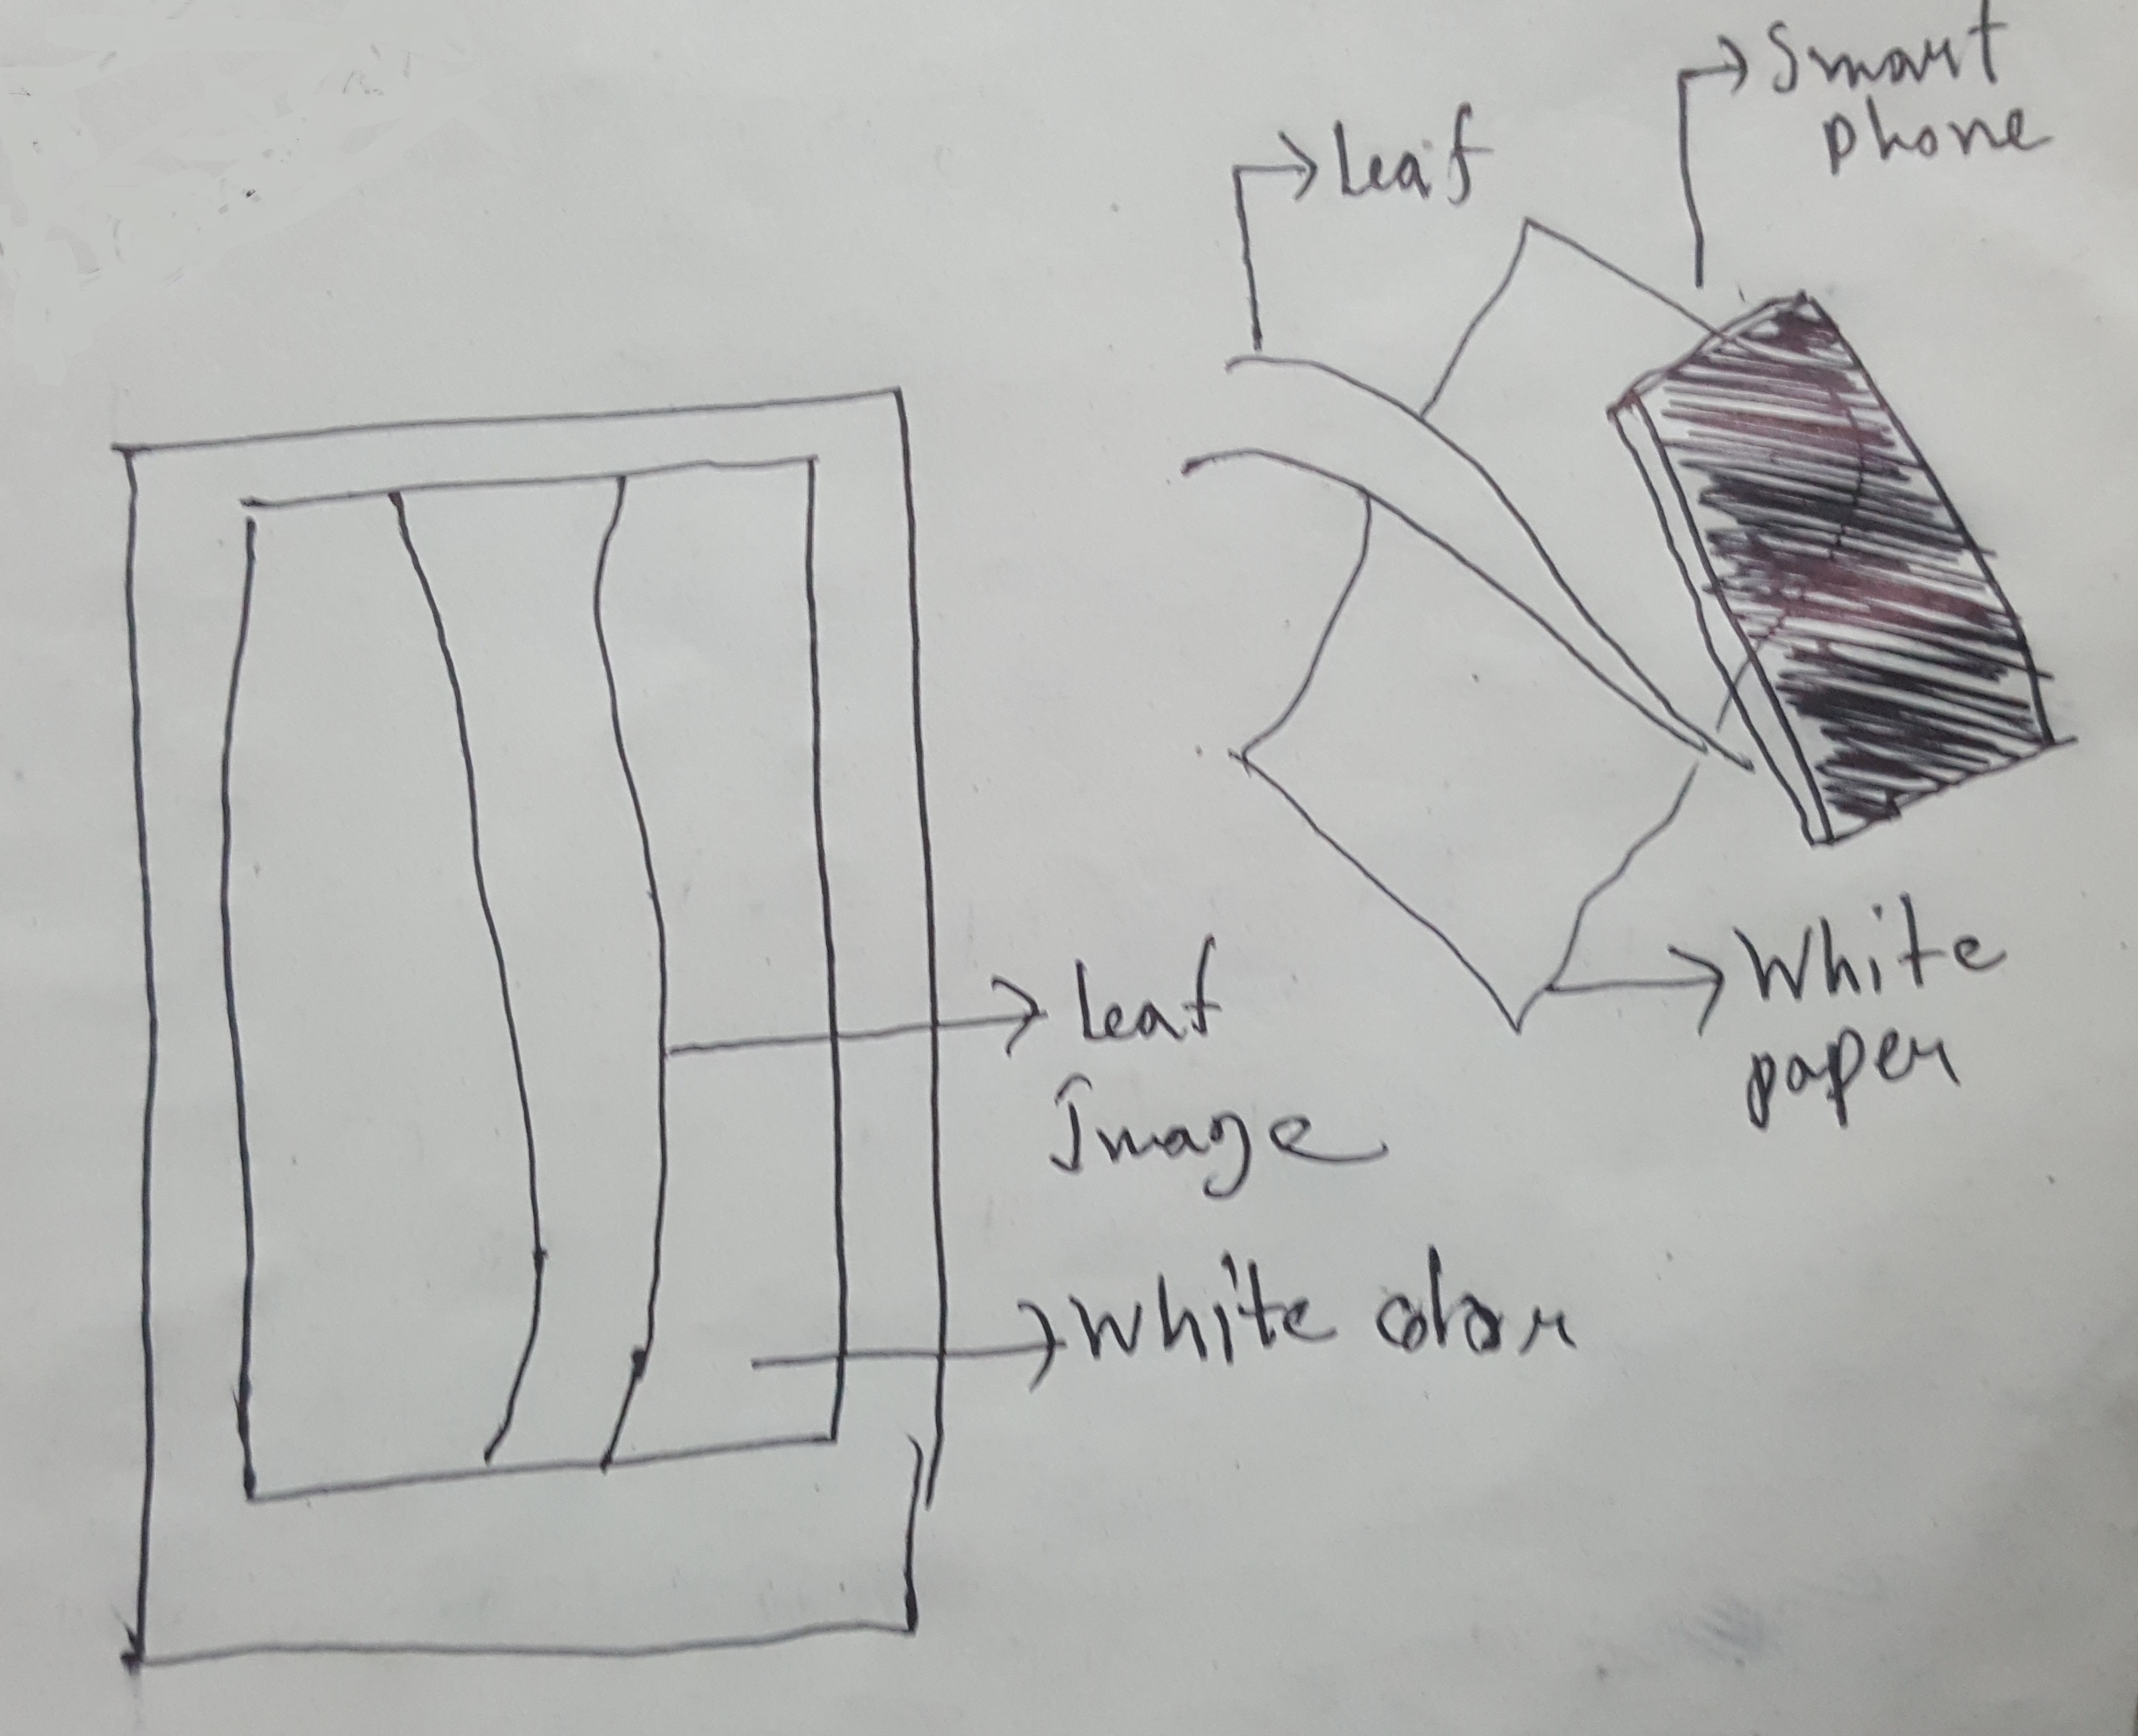 Smart
phone
Leaf
White
paper
Leaf
Image
White color